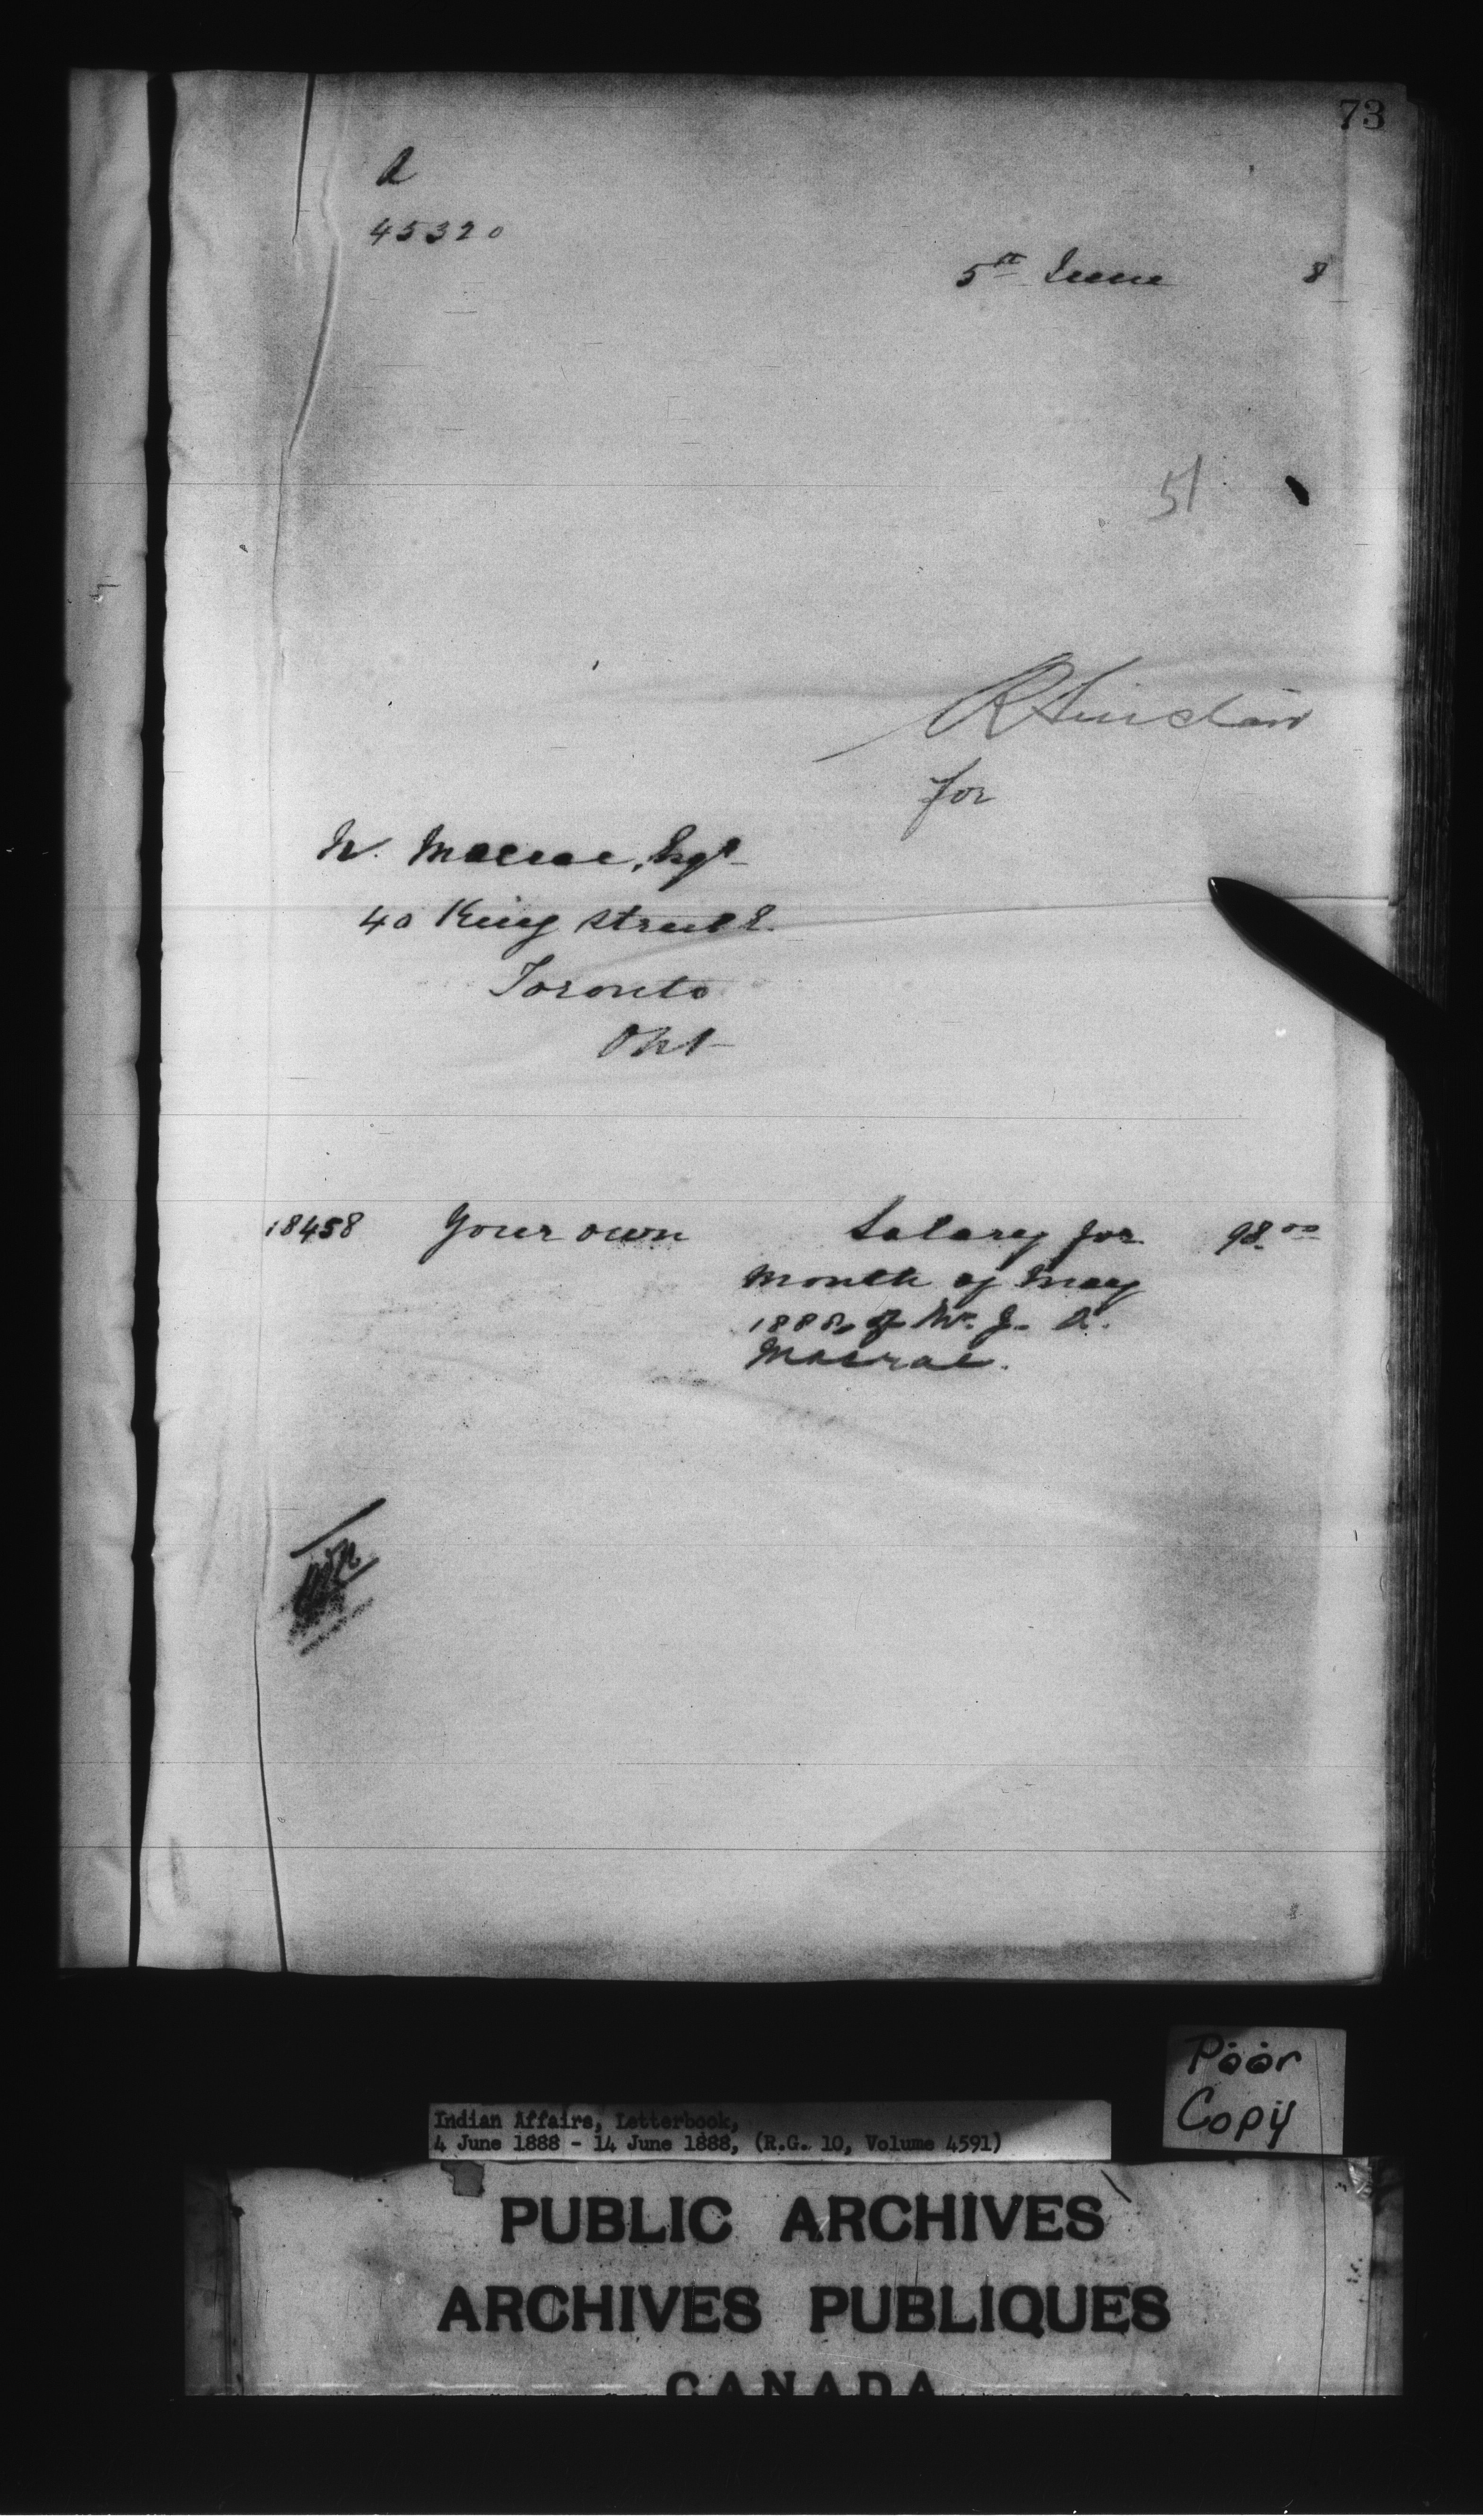 73
A
45320
5th June 8
51
R Sinclair
for
N. Macrae, Esqr
40 King Street E.
Toronto
Ont
18458 Your own Salary for 98.00
month of May
1888, of Mr. J. A.
Macrae.
Poor
Copy
Indian Affairs, Letterbook,
4 June 1888 - 14 June 1888, (R.G. 10, Volume 4591)
PUBLIC ARCHIVES
ARCHIVES PUBLIQUES
CANADA